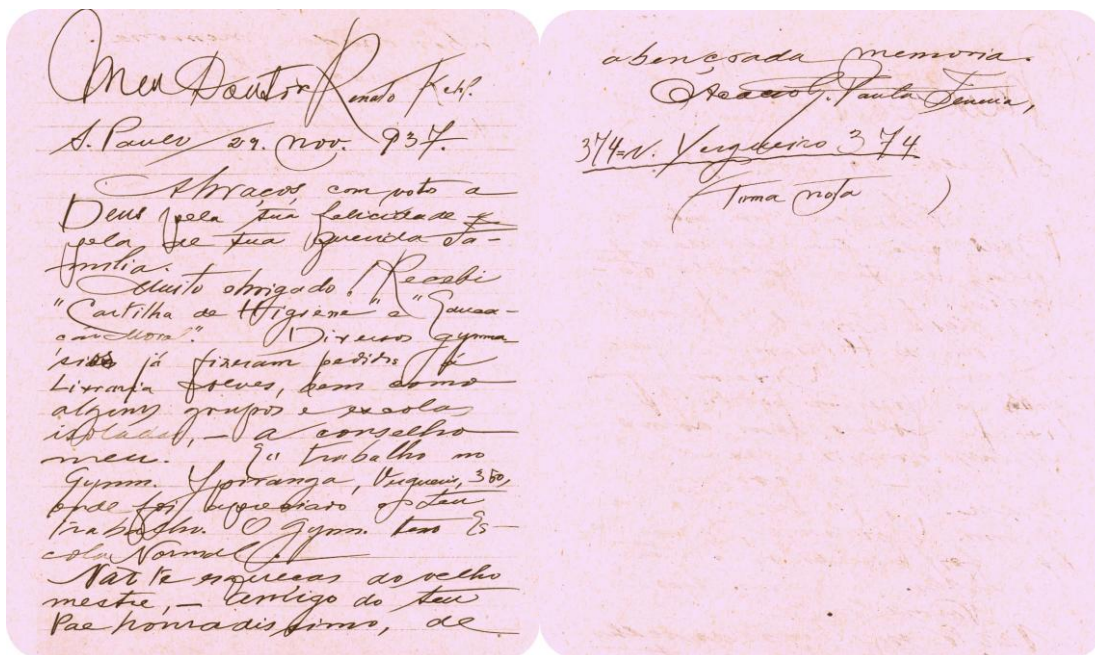 Meu Doutor Renato Kehl.
S. Paulo / 29. Nov. 937.
Abraços, com voto a
Deus pela tua felicidade e
pela de tua querida fa-
milia.
Muito obrigado! Recebi
"Cartilha de Higiene" e "Educa-
ção Moral". Diversos gymna
sios já fizeram pedidos á
Livraria Alves, bem como
alguns grupos e escolas
isoladas, — a conselho
meu. Eu trabalho no
Gymn. Ypiranga, Vergueiro, 350,
onde foi apreciado o teu
trabalho. O Gymn. tem Es-
cola Normal.
Não te esqueças do velho
mestre, — amigo do teu
Pae honradissimo, de
abençoada memoria.
G. Paula Ferreira,
374=N. Vergueiro 374
(Firma nota)